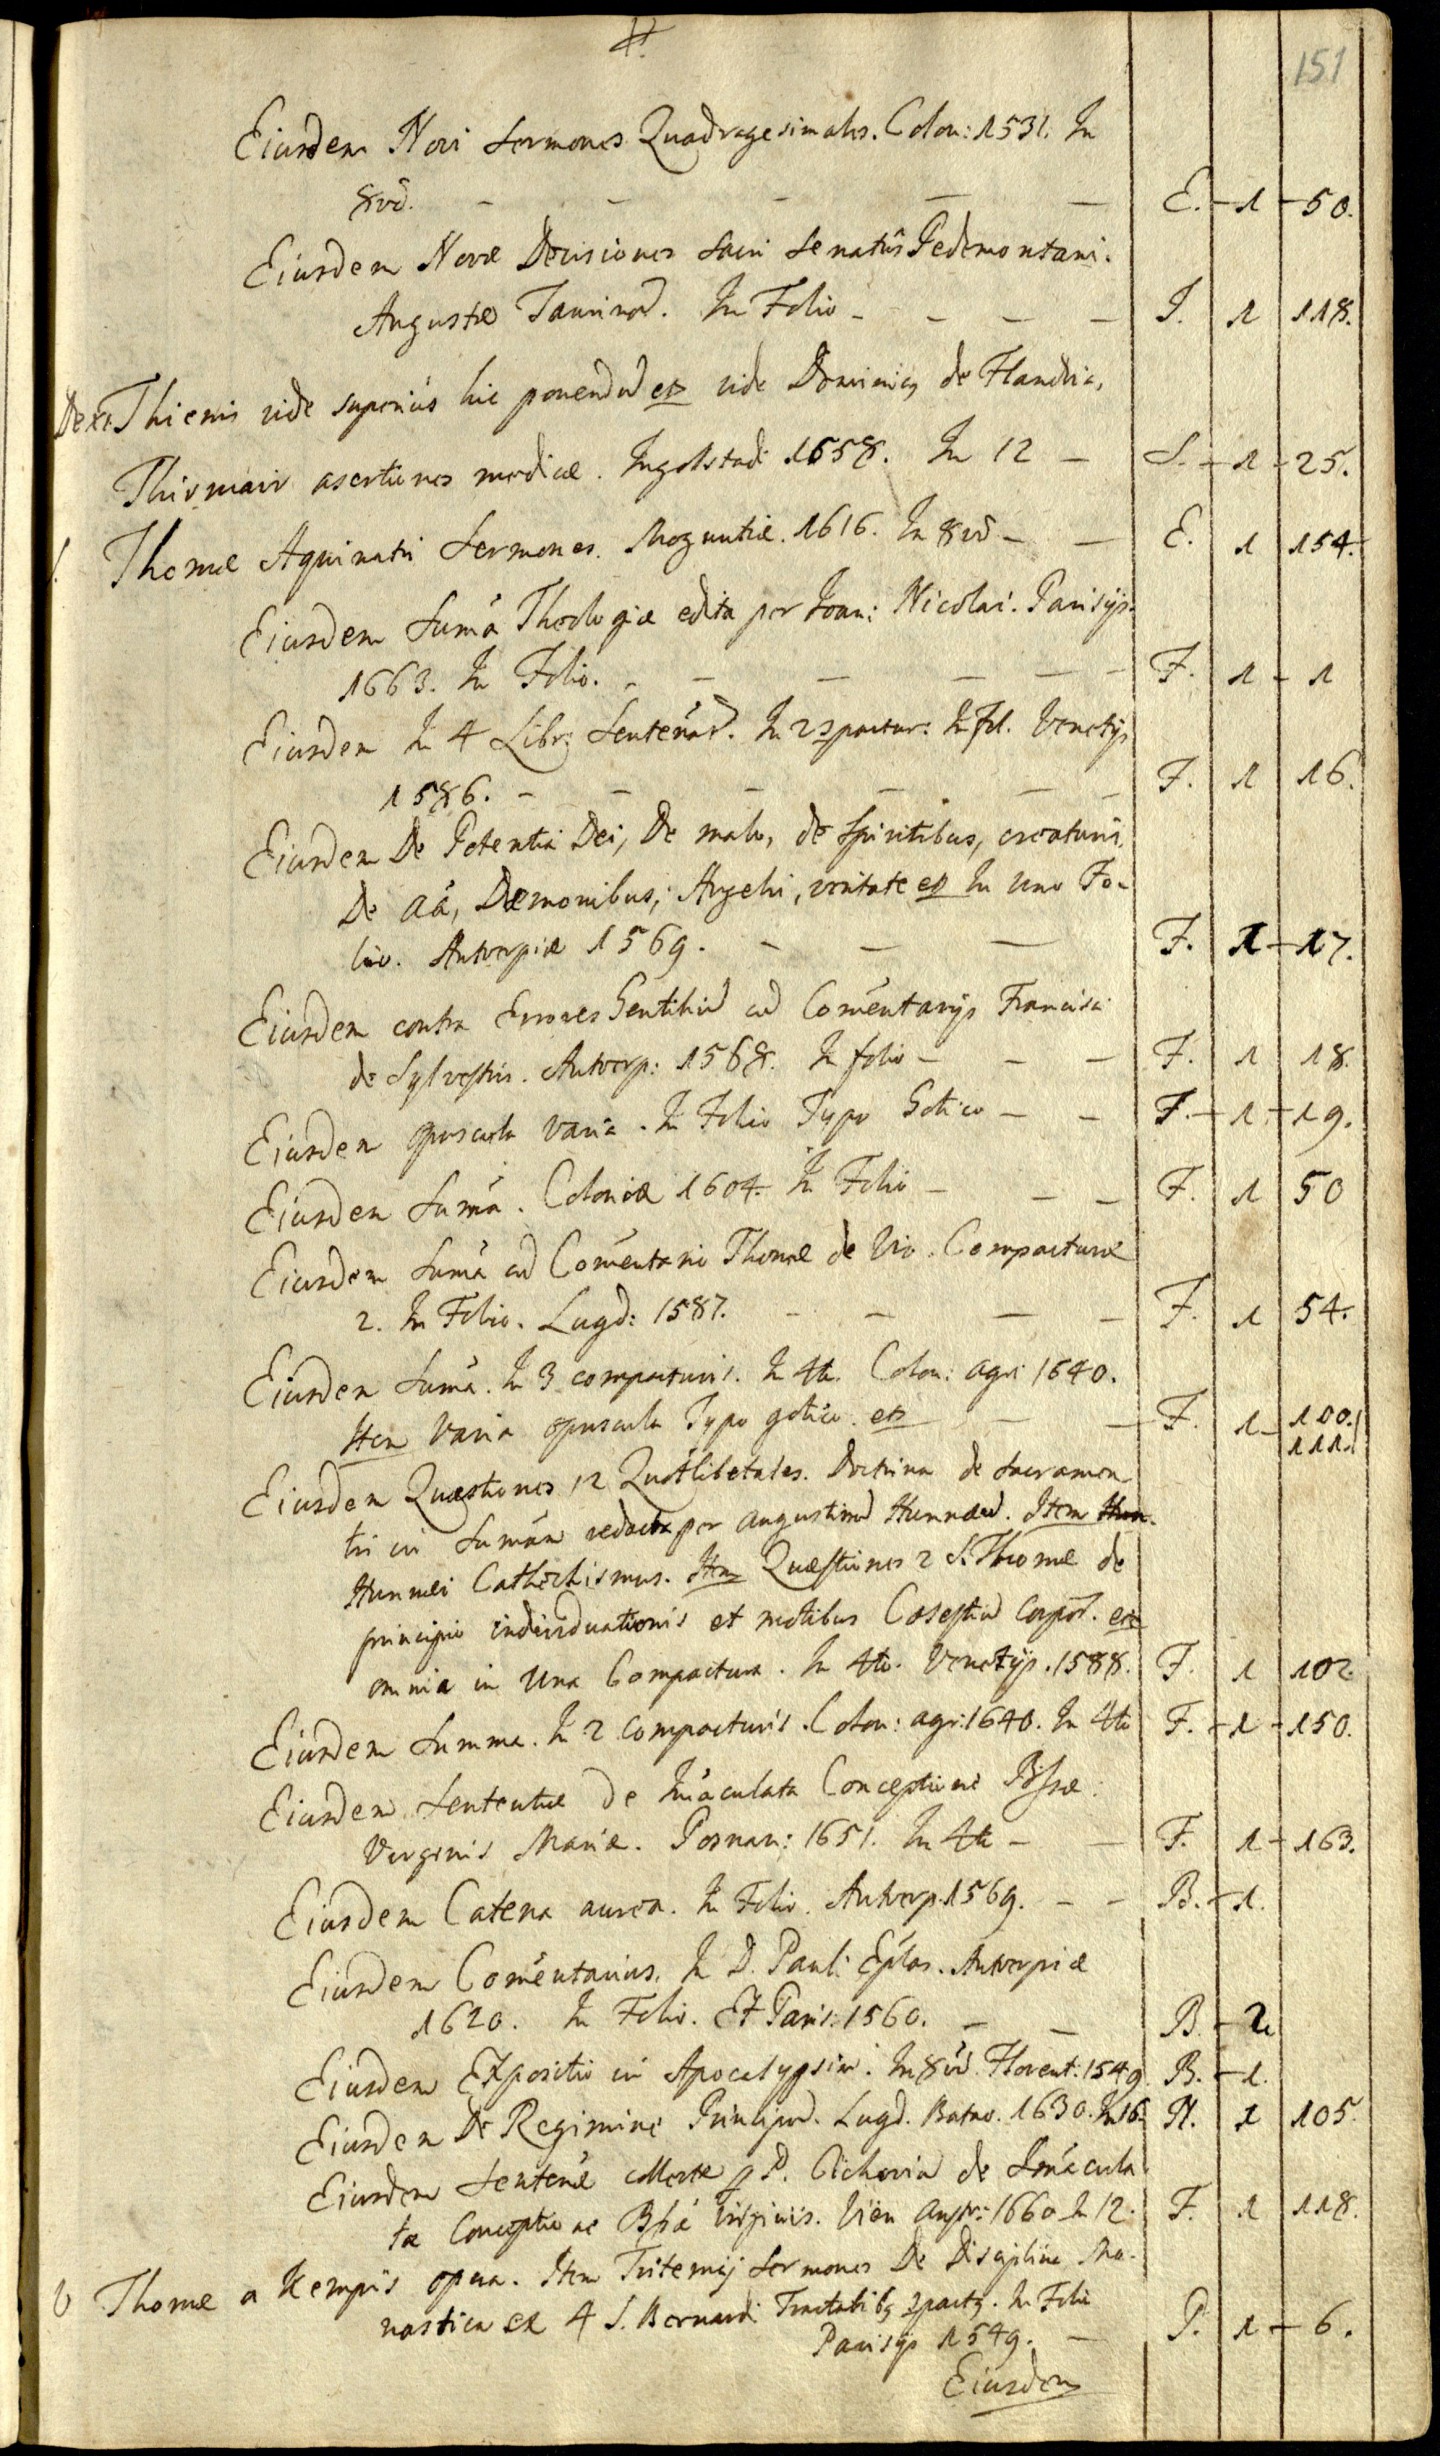 151
Eiusdem Novi Sermones Quadragesimales. Colon: 1531. In
8vo. — — — — — E. — 1 — 50.
Eiusdem Novæ Decisiones Sacri Senatûs Pedemontani.
Augustæ Taurinor. In Folio — — — — I. 1 118.
Thienis vide superiùs hic ponendũ etc vide Dominicq de Flandria,
Thirmair asertiones medicæ. Ingolstadi 1658. In 12 — S. — 1 — 25.
Thomæ Aquinatis Sermones. Moguntiæ. 1616. In 8vo — — E. 1 154.
Eiusdem Sum̃a Theologiæ edita per Joan: Nicolai. Parisijs.
1663. In Folio. — — — — — F. 1 — 1
Eiusdem In 4 Libr: Sentẽnar. In 2 compactur: In fol. Venetijs
1586. — — — — — F. 1 16.
Eiusdem De Potentia Dei, De malo, de Spiritibus, creaturis,
De aã, Dæmonibus, Angelis, veritate etc In uno Fo-
lio. Antverpiæ 1569. — — — F. 1 — 17.
Eiusdem contra Errores Gentiliũ cũ Com̃entarijs Francisci
de Sylvestris. Antverp: 1568. In folio — — — F. 1 18.
Eiusdem opuscula varia. In Folio Typo Gotico — — F. — 1 — 19.
Eiusdem Sum̃a. Coloniæ 1604. In Folio — — — F. 1 50
Eiusdem Sum̃a cũ Com̃entario Thomæ de Vio. Compacturæ
2. In Folio. Lugd: 1587. — — — — F. 1 54.
Eiusdem Sum̃a. In 3 compacturis. In 4to. Colon: agri 1640.
Item varia opuscula Typo gotico. etc — — F. 1 — 100. 111.
Eiusdem Quæstiones 12 Quotlibetales. Doctrina de Sacramen-
tis in Sum̃am redacta per Augustinũ Hunnæũ. Item Hun-
Hunnæi Cathechismus. Item Quæstiones 2 S. Thomæ de
principio individuationis et motibus Cœlestiũ Corpor. etc
omnia in una Compactura. In 4to. Venetijs. 1588. F. 1 102
Eiusdem Summa. In 2 compacturis. Colon: agri: 1640. In 4to F. — 1 — 150.
Eiusdem Sententiæ de Im̃aculata Conceptione Bissæ:
Virginis Mariæ. Posnan: 1651. In 4to — — F. 1 — 163.
Eiusdem Catena aurea. In Folio. Antverp. 1569. — — B. — 1.
Eiusdem Com̃entarius. In D. Pauli Ep̃las. Antverpiæ
1620. In Folio. Et Paris: 1560. — — B. — 2
Eiusdem Expositio in Apocalypsim. In 8vo. Florent: 1549 B. — 1.
Eiusdem De Regimine Principũ. Lugd. Batav. 1630. In 16. N. 1 105.
Eiusdem Sentẽn̄æ collectæ p P. Cichoviũ de Im̃acula-
ta Conceptione Bssæ Virginis. Vien Austr: 1660 In 12. F. 1 118.
Thomæ a Kempis opera. Item Tritemij Sermones De Disciplina Mo-
nastica et 4 S. Bernardi Tractatibq compactq. In Folio
Parisijs 1549. — P. 1 — 6.
Eiusdem